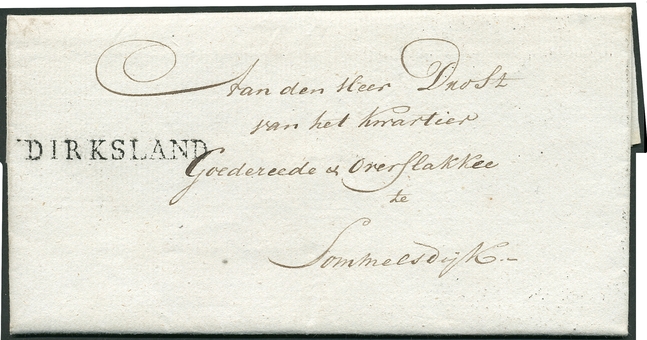 Aan den Heer Drost
van het Kwartier
DIRKSLAND
Goedereede & Overflakkee
te
Sommelsdijk.-